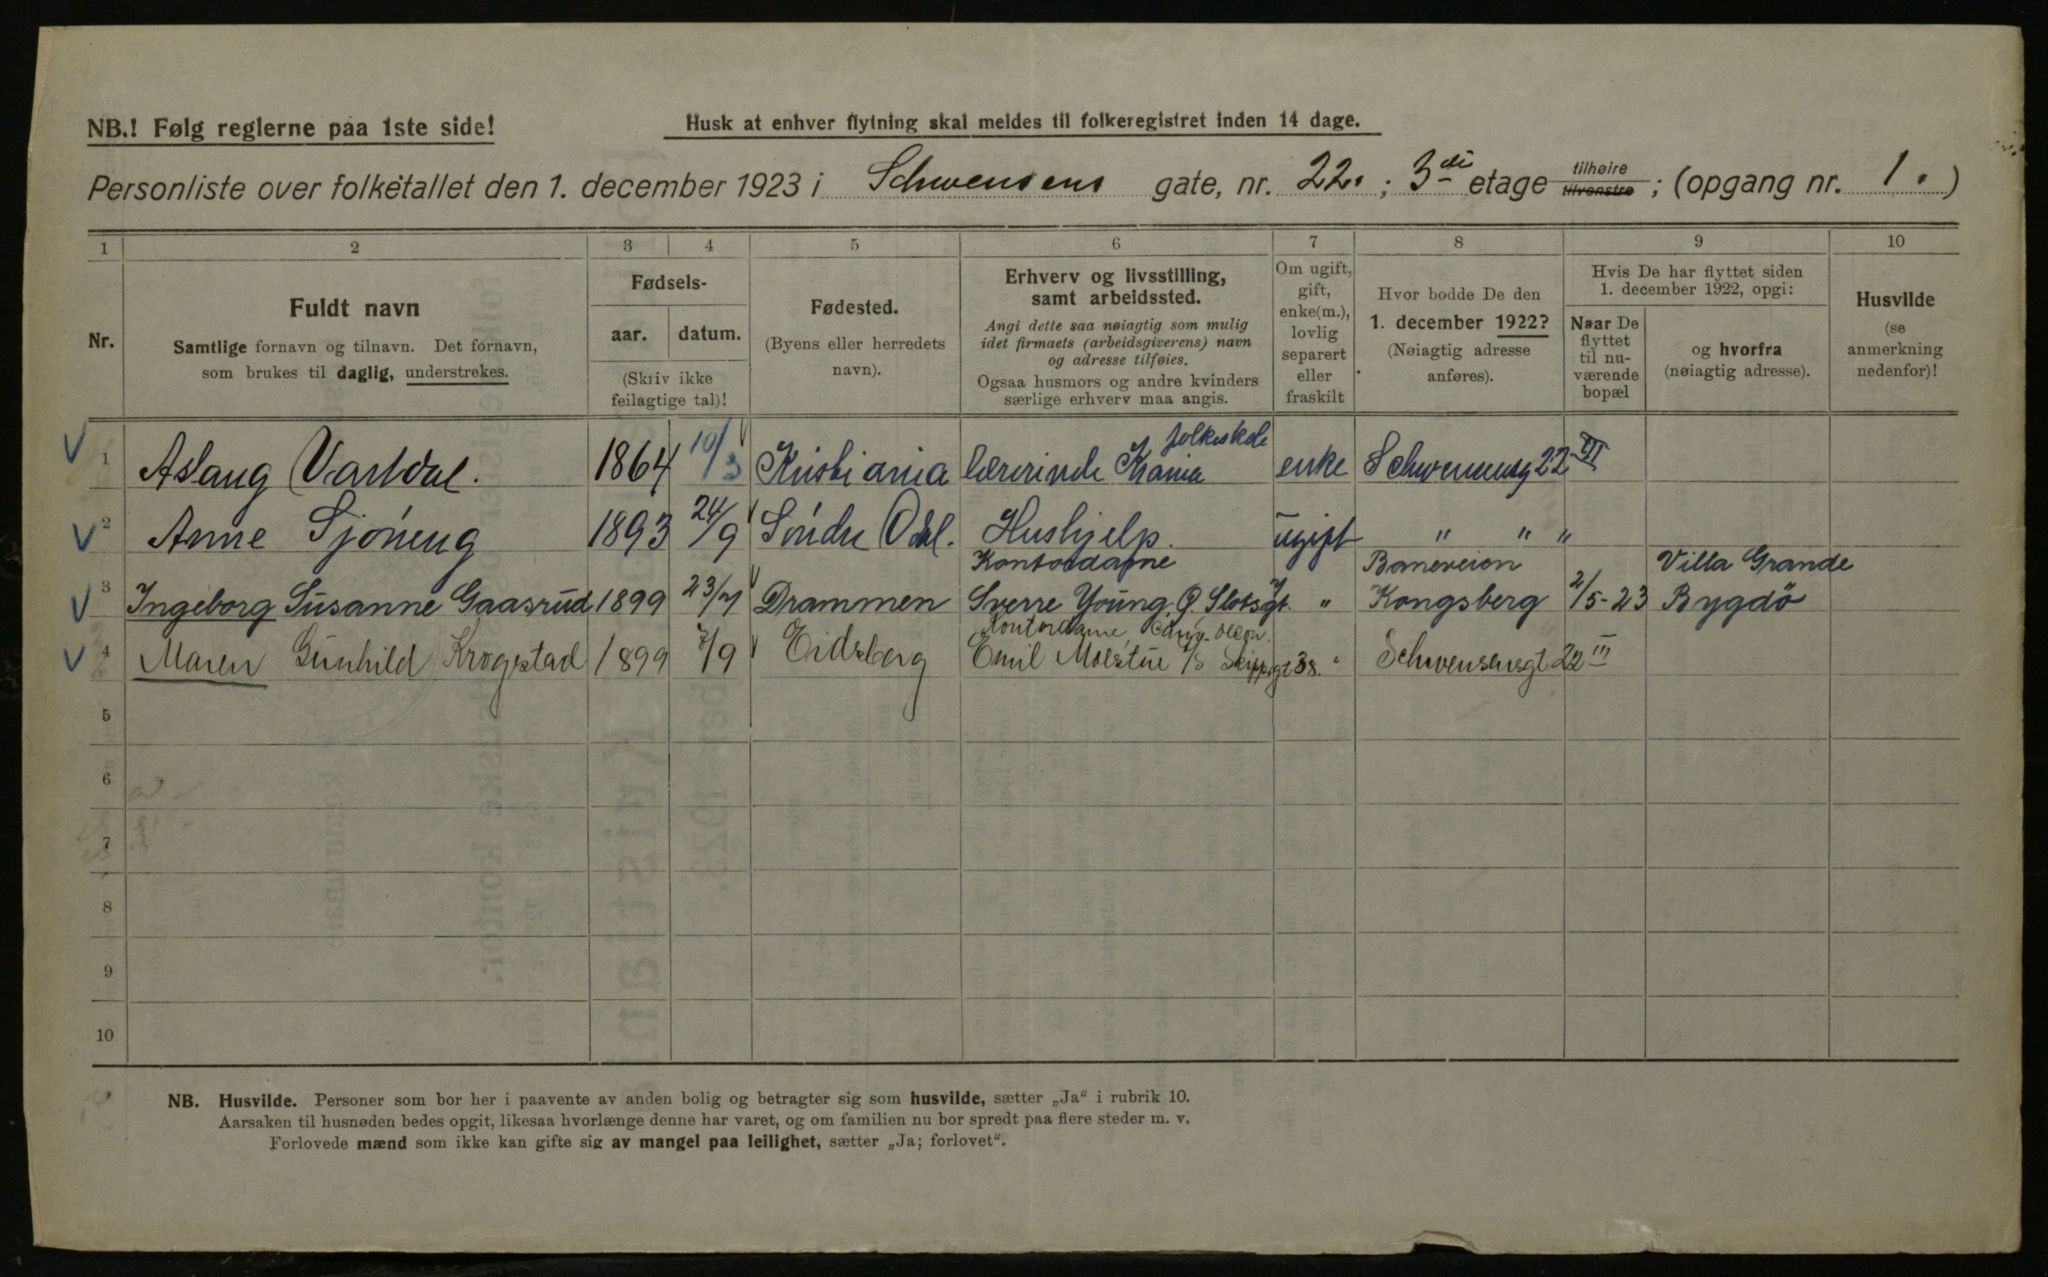 NB.! Følg reglerne paa 1ste side!
Husk at enhver flytning skal meldes til folkeregistret inden 14 dage.
Personliste over folketallet den 1. december 1923 i Schwensens gate, nr. 22. ; 3die etage tilhøire tilvenstre ; (opgang nr. 1. )
1 2 3 4 5 6 7 8 9 10
Nr.
Fuldt navn
Samtlige fornavn og tilnavn. Det fornavn,
som brukes til daglig, understrekes.
Fødsels-
aar. datum.
(Skriv ikke
feilagtige tal)!
Fødested.
(Byens eller herredets
navn).
Erhverv og livsstilling,
samt arbeidssted.
Angi dette saa nøiagtig som mulig
idet firmaets (arbeidsgiverens) navn
og adresse tilføies.
Ogsaa husmors og andre kvinders
særlige erhverv maa angis.
Om ugift,
gift,
enke(m.),
lovlig
separert
eller
fraskilt
Hvor bodde De den
1. december 1922?
(Nøiagtig adresse
anføres).
Hvis De har flyttet siden
1. december 1922, opgi:
Naar De
flyttet
til nu-
værende
bopæl
og hvorfra
(nøiagtig adresse).
Husvilde
(se
anmerkning
nedenfor)!
folkeskole
1 Aslaug Vartdal. 1864 10/3 Kristiania lærerinde Krania enke Schwensensg 22 III
2 Anne Sjöneng 1893 24/9 Söndre Odal. Hushjelp. ugift " " "
Kontordame Baneveien Villa Grande
3 Ingeborg Susanne Gaasrud 1899 23/7 Drammen Sverre Young, Ø. Slotsgt. 7 " Kongsberg 2/5-23 Bygdö
Kontordame
4 Maren Gunhild Krogstad 1899 7/9 Eidsberg Emil Moestue A/S Skippergt 38. " Schwensensgt 22 III
5
6
7
8
9
10
NB. Husvilde. Personer som bor her i paavente av anden bolig og betragter sig som husvilde, sætter „Ja“ i rubrik 10.
Aarsaken til husnøden bedes opgit, likesaa hvorlænge denne har varet, og om familien nu bor spredt paa flere steder m. v.
Forlovede mænd som ikke kan gifte sig av mangel paa leilighet, sætter „Ja; forlovet“.